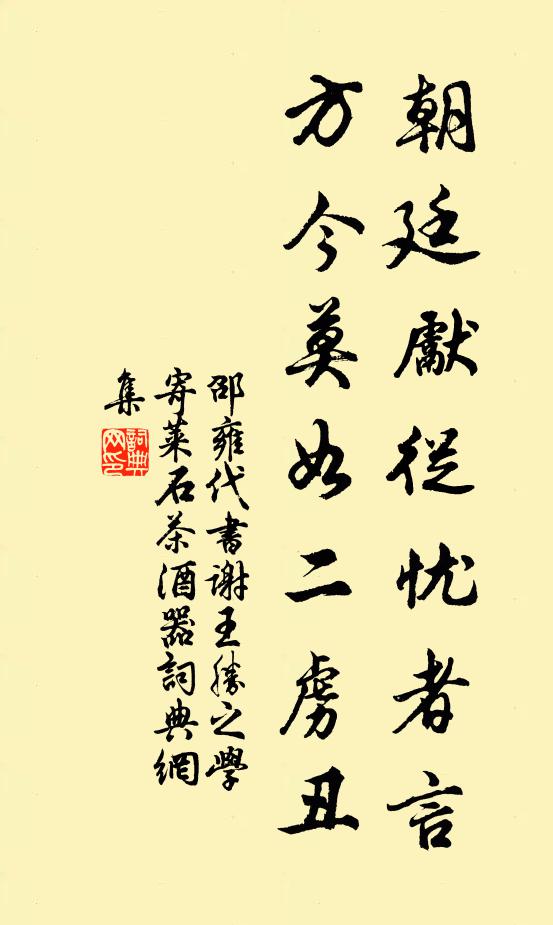 朝廷獻從忧者言
方今莫如二虜丑
邵雍代書謝王勝之學
寄萊石茶酒器詞典網
集
詞典
网印